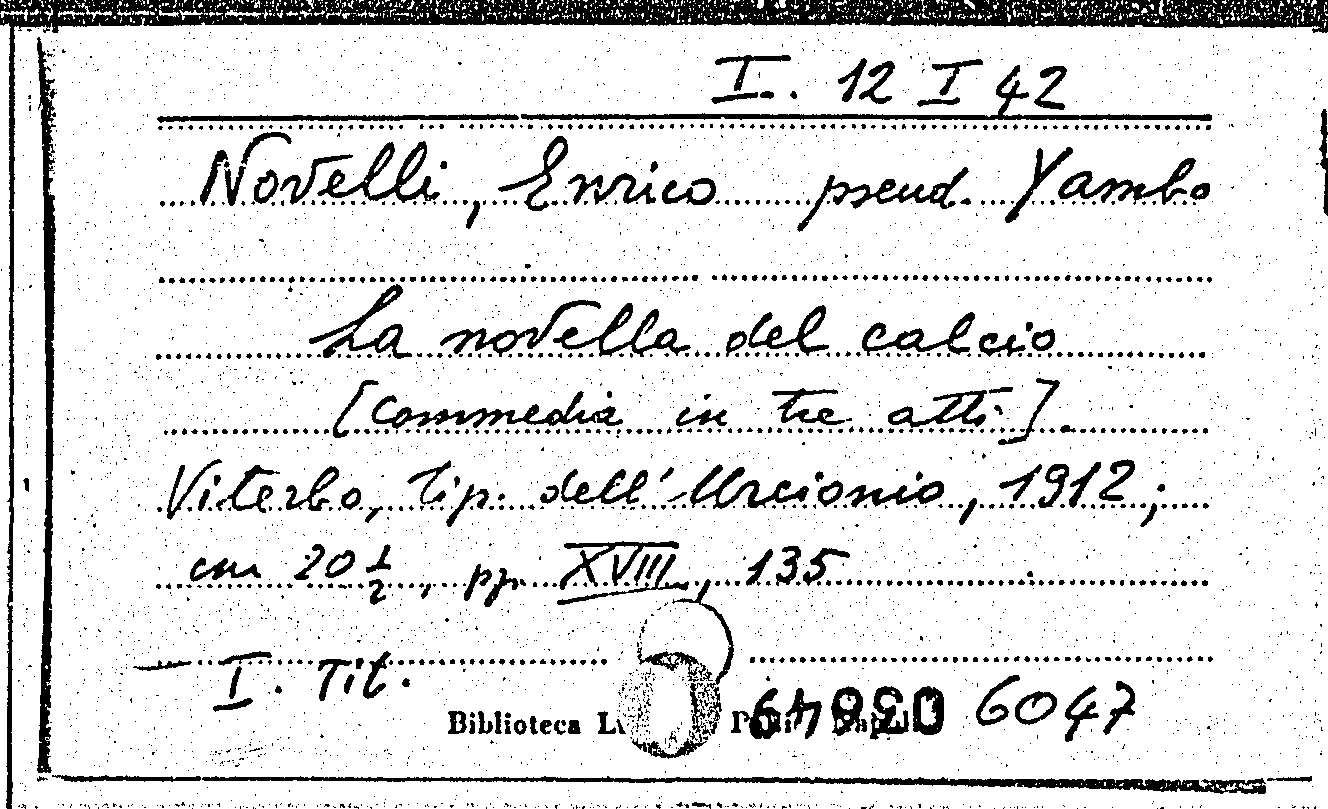 I. 12 I 42
Novelli, Enrico pseud. Yambo
La novella del calcio
[Commedia in tre atti].
Viterbo, Tip. dell'Urcionio, 1912;
cm 20 1/2, pp. XVIII, 135
I. Tit.
Biblioteca 6047